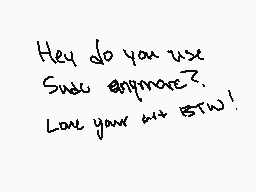 Hey do you use
Sudo anymore?
Love your art BTW!